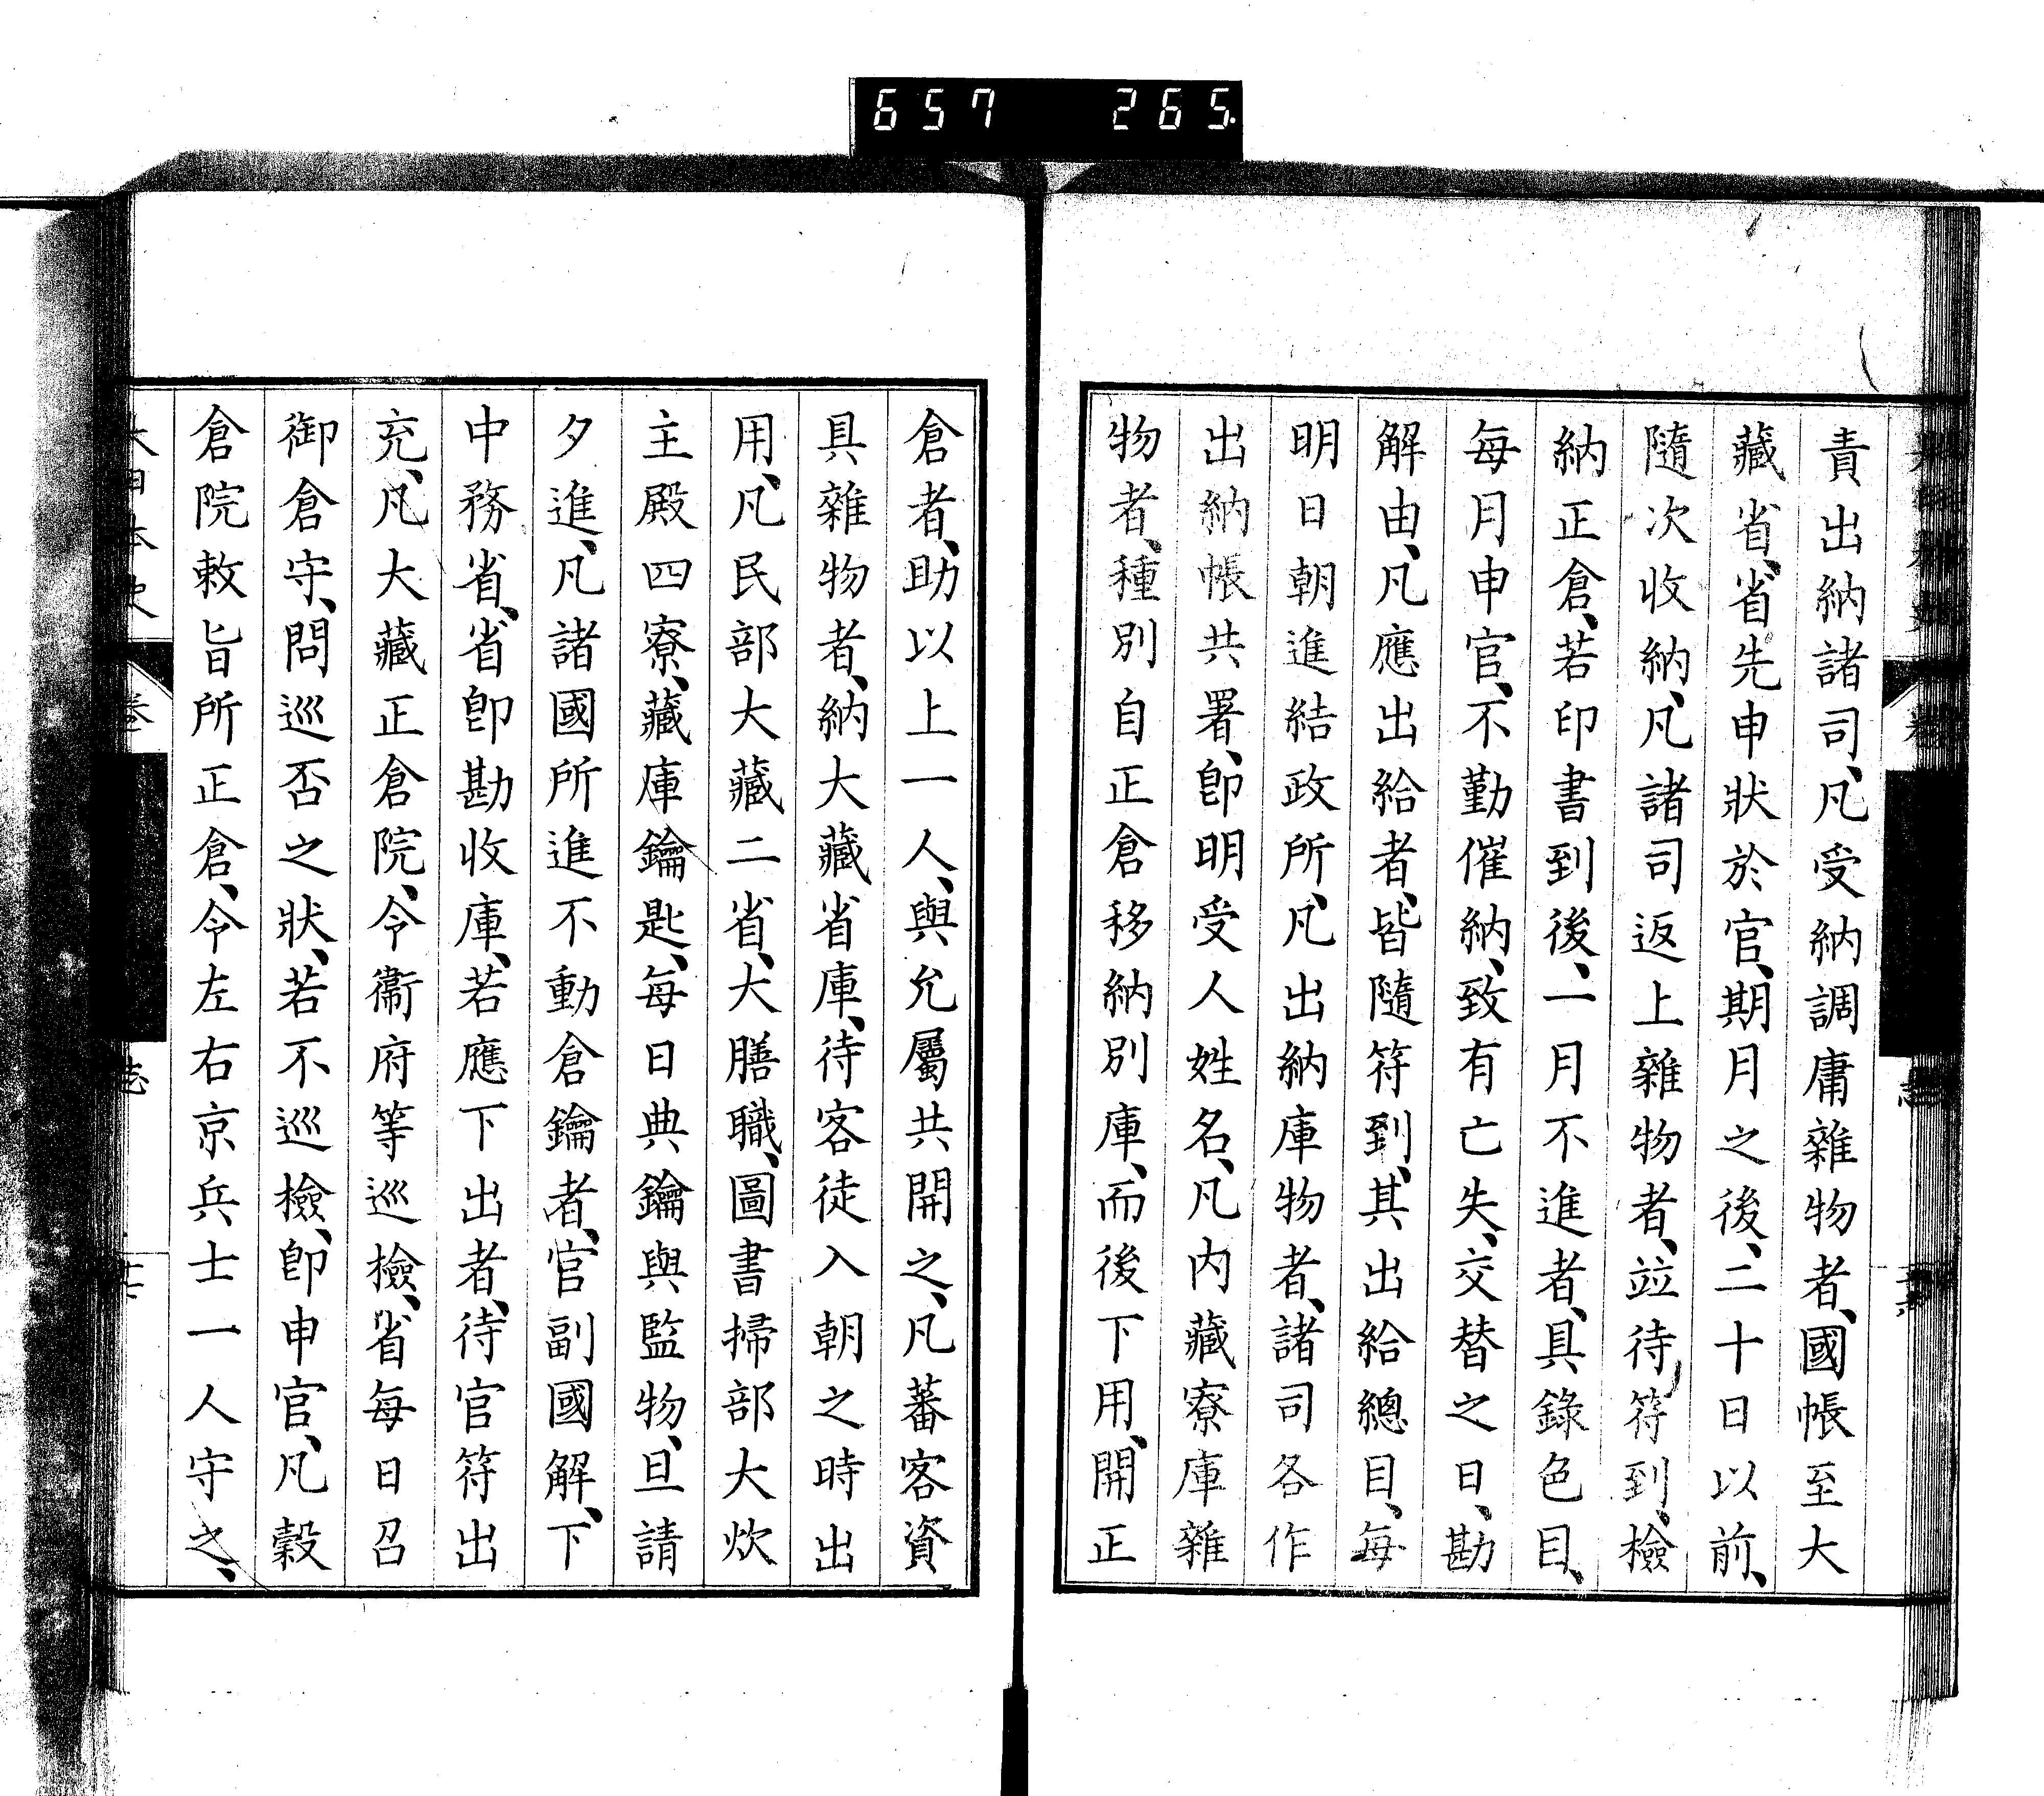 657 265.
責出納諸司、凡受納調庸雜物者、國帳至大
藏省、省先申狀於官、期月之後、二十日以前、
隨次收納、凡諸司返上雜物者、竝待符到、檢
納正倉、若印書到後、一月不進者、具錄色目、
每月申官、不勤催納、致有亡失、交替之日、勘
解由、凡應出給者、皆隨符到、其出給總目、每
明日朝進結政所、凡出納庫物者、諸司各作
出納帳共署、卽明受人姓名、凡內藏寮庫雜
物者、種別自正倉移納別庫、而後下用、開正
倉者、助以上一人、與允屬共開之、凡蕃客資
具雜物者、納大藏省庫、待客徒入朝之時出
用、凡民部大藏二省、大膳職、圖書掃部大炊
主殿四寮、藏庫鑰匙、每日典鑰與監物、旦請
夕進、凡諸國所進不動倉鑰者、官副國解、下
中務省、省卽勘收庫、若應下出者、待官符出
充、凡大藏正倉院、令衞府等巡檢、省每日召
御倉守、問巡否之狀、若不巡檢、卽申官、凡穀
倉院敕旨所正倉、令左右京兵士一人守之、
大日本史
卷
志